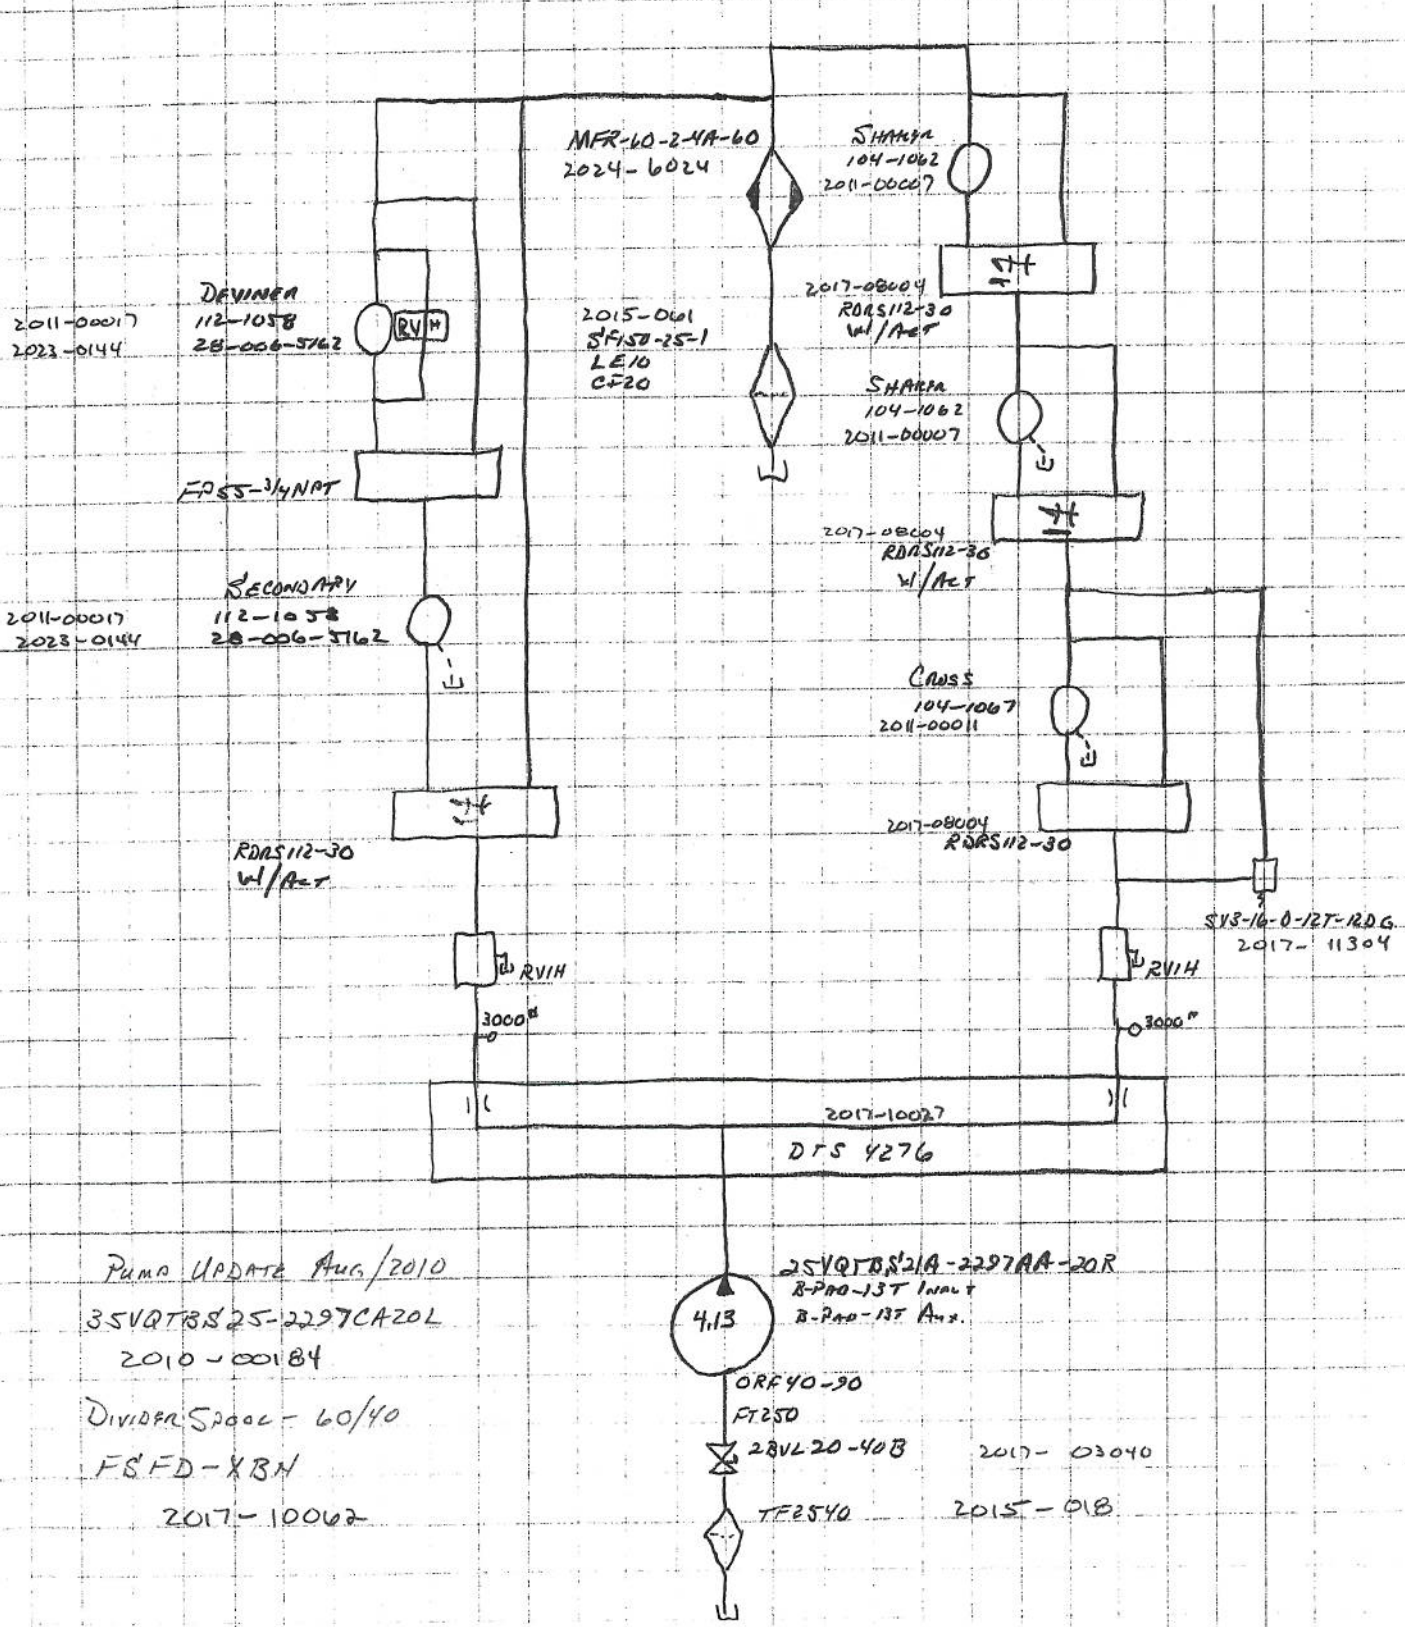 MFR-60-2-4A-60
2024-6024
SHAKER
104-1062
2011-00007
DEVINER
112-1058
28-006-5162
2011-00017
2023-0144
RV H
2015-061
SF150-25-1
LE10
CF20
2017-08004
RDRS112-30
W/ACT
SHAKER
104-1062
2011-00007
FP55-3/4NPT
2017-08004
RDRS112-30
W/ACT
SECONDARY
112-1058
28-006-5162
2011-00017
2023-0144
CROSS
104-1067
2011-00011
2017-08004
RDRS112-30
RDRS112-30
W/ACT
SV3-16-0-12T-12DG
2017-11304
RV1H
RV1H
3000#
3000#
2017-10027
DTS 4276
PUMP UPDATE AUG/2010
35VQTBS25-2297CA20L
2010-00184
DIVIDER SPOOL - 60/40
FSFD-XBN
2017-10062
4.13
25VQTBS21A-2297AA-20R
B-PAD-13T INPUT
B-PAD-13T AUX.
ORF40-90
FT250
2BVL20-40B
2017-03040
TF2540
2015-018